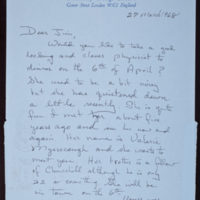 Gower Street London WC1E England
27 March 1968
Dear Jim,
Would you like to take a good
looking and clever physicist to
dinner on the 6th of April?
She used to be a bit noisy
but she has quietened down
a little recently. She is quite
fun & I met her about five
years ago and see her now and
again. Her name is Valerie
Myerscough and she wants to
meet you. Her brother is a fellow
of Churchill although he is only
22 or something. She will be
in town on the 6th.